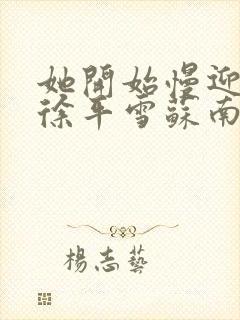 她開始慢迎
徐平雪蘇南
楊志藝